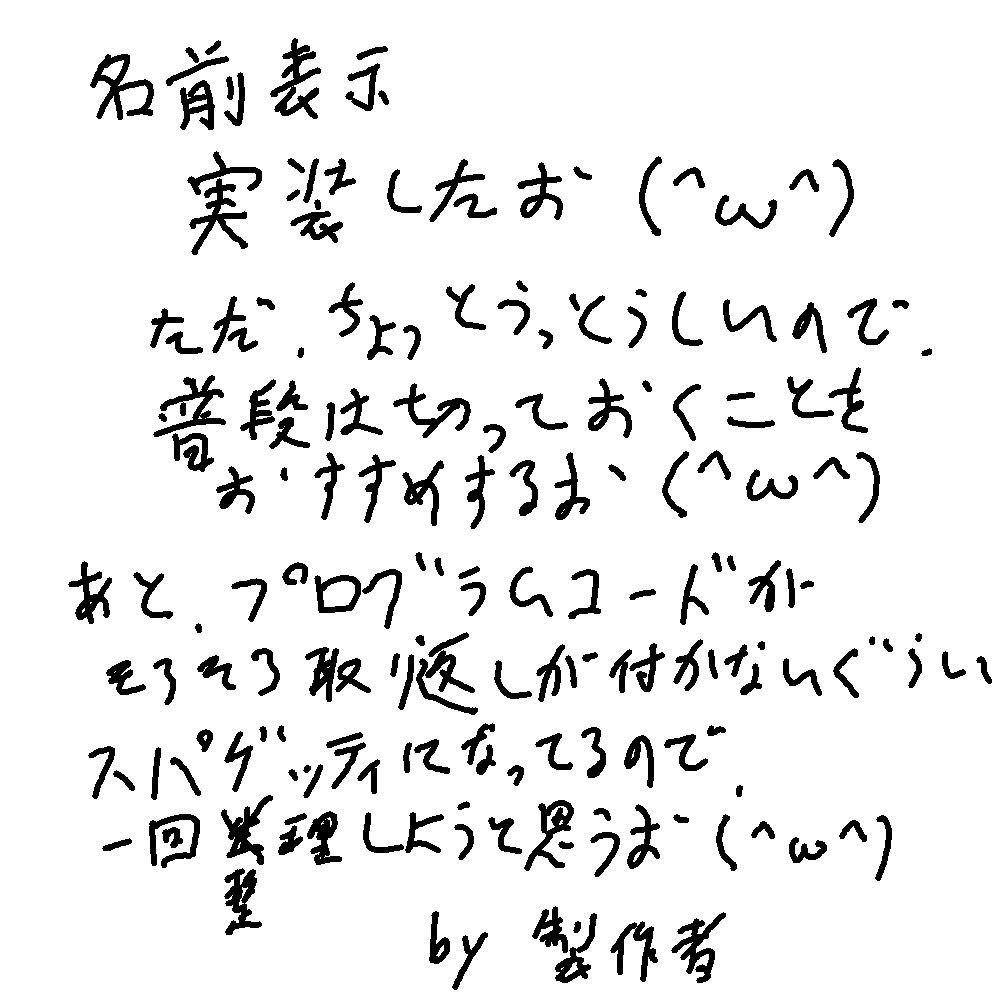 名前表示
実装したお(^ω^)
ただ、ちょっとうっとうしいので、
普段は切っておくことを
おすすめするお(^ω^)
あと、プログラムコードが
そろそろ取り返しが付かないぐらい
スパゲッティになってるので、
一回整理しようと思うお(^ω^)
by 製作者